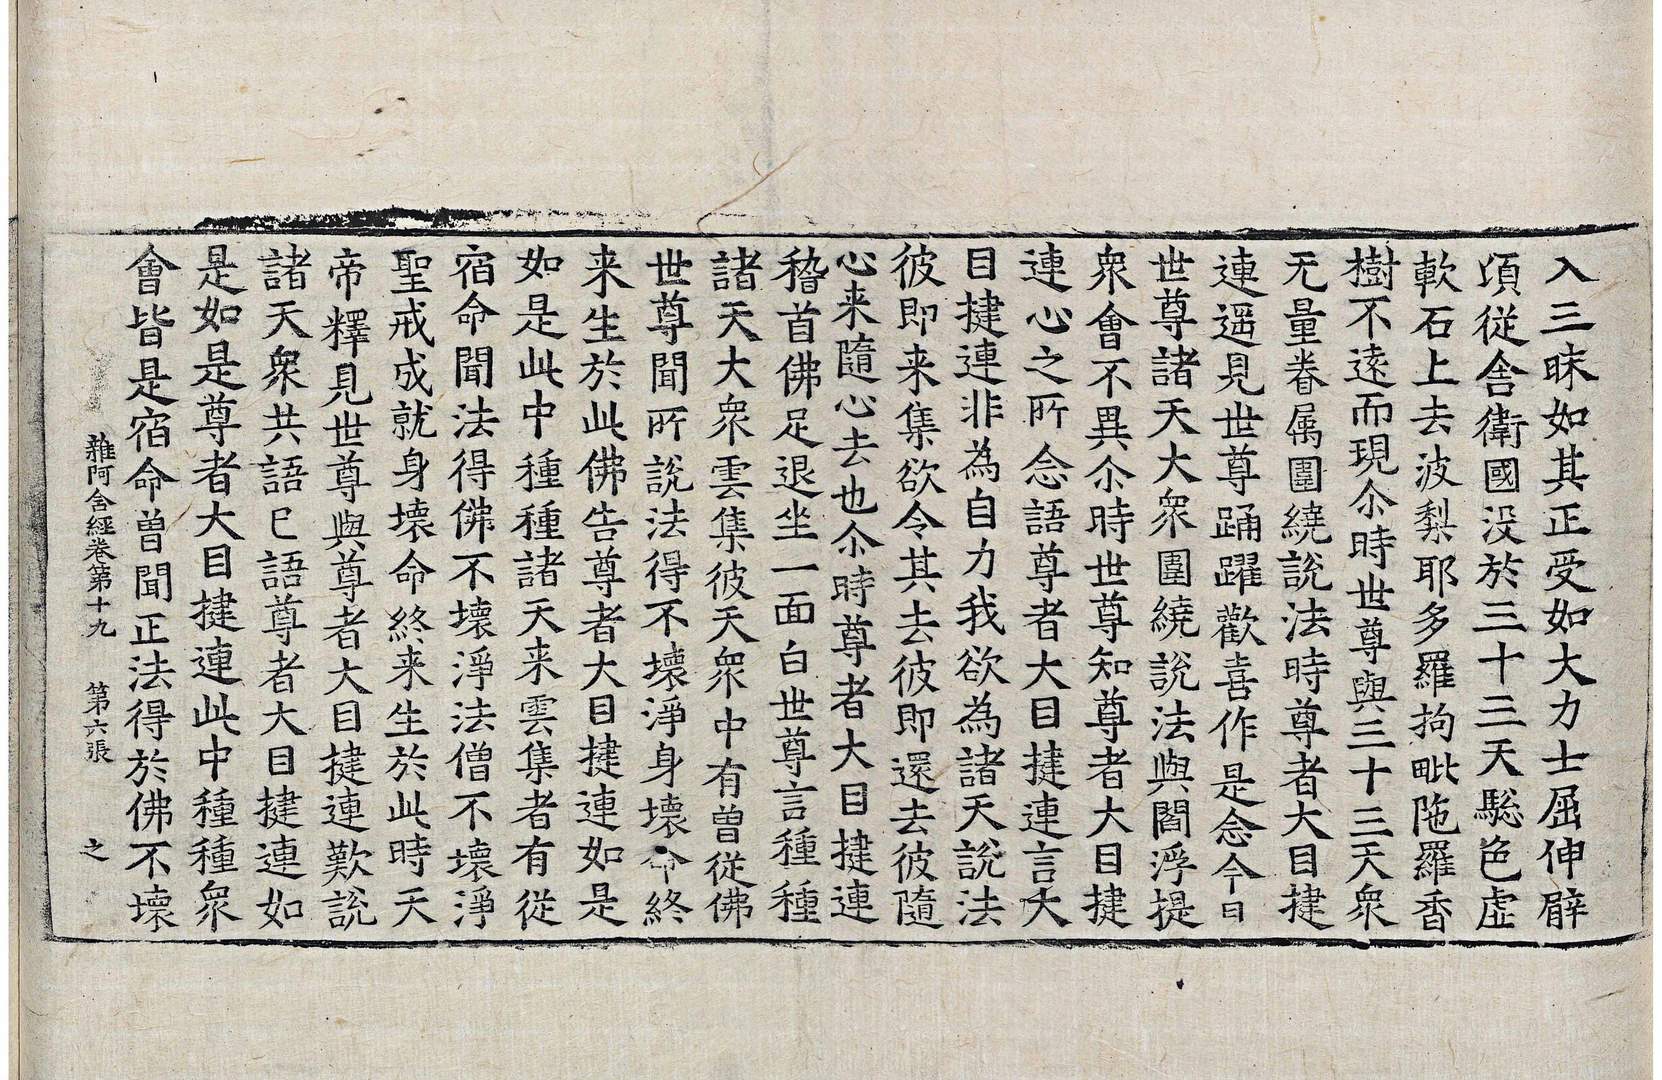 入三昧如其正受如大力士屈伸臂
頃從舍衛國没於三十三天驄色虛
軟石上去波梨耶多羅拘毗陁羅香
樹不遠而現尒時世尊與三十三天衆
无量眷属圍繞說法時尊者大目揵
連遥見世尊踊躍歡喜作是念今日
世尊諸天大衆圍繞說法與閻浮提
衆會不異尒時世尊知尊者大目揵
連心之所念語尊者大目揵連言大
目揵連非為自力我欲為諸天說法
彼即来集欲令其去彼即還去彼隨
心来隨心去也尒時尊者大目揵連
稽首佛足退坐一面白世尊言種種
諸天大衆雲集彼天衆中有曾從佛
世尊聞所說法得不壞淨身壞命終
来生於此佛告尊者大目揵連如是
如是此中種種諸天来雲集者有從
宿命聞法得佛不壞淨法僧不壞淨
聖戒成就身壞命終来生於此時天
帝釋見世尊與尊者大目揵連歎說
諸天衆共語已語尊者大目揵連如
是如是尊者大目揵連此中種種衆
會皆是宿命曾聞正法得於佛不壞
雜阿含經卷第十九 第六張 之